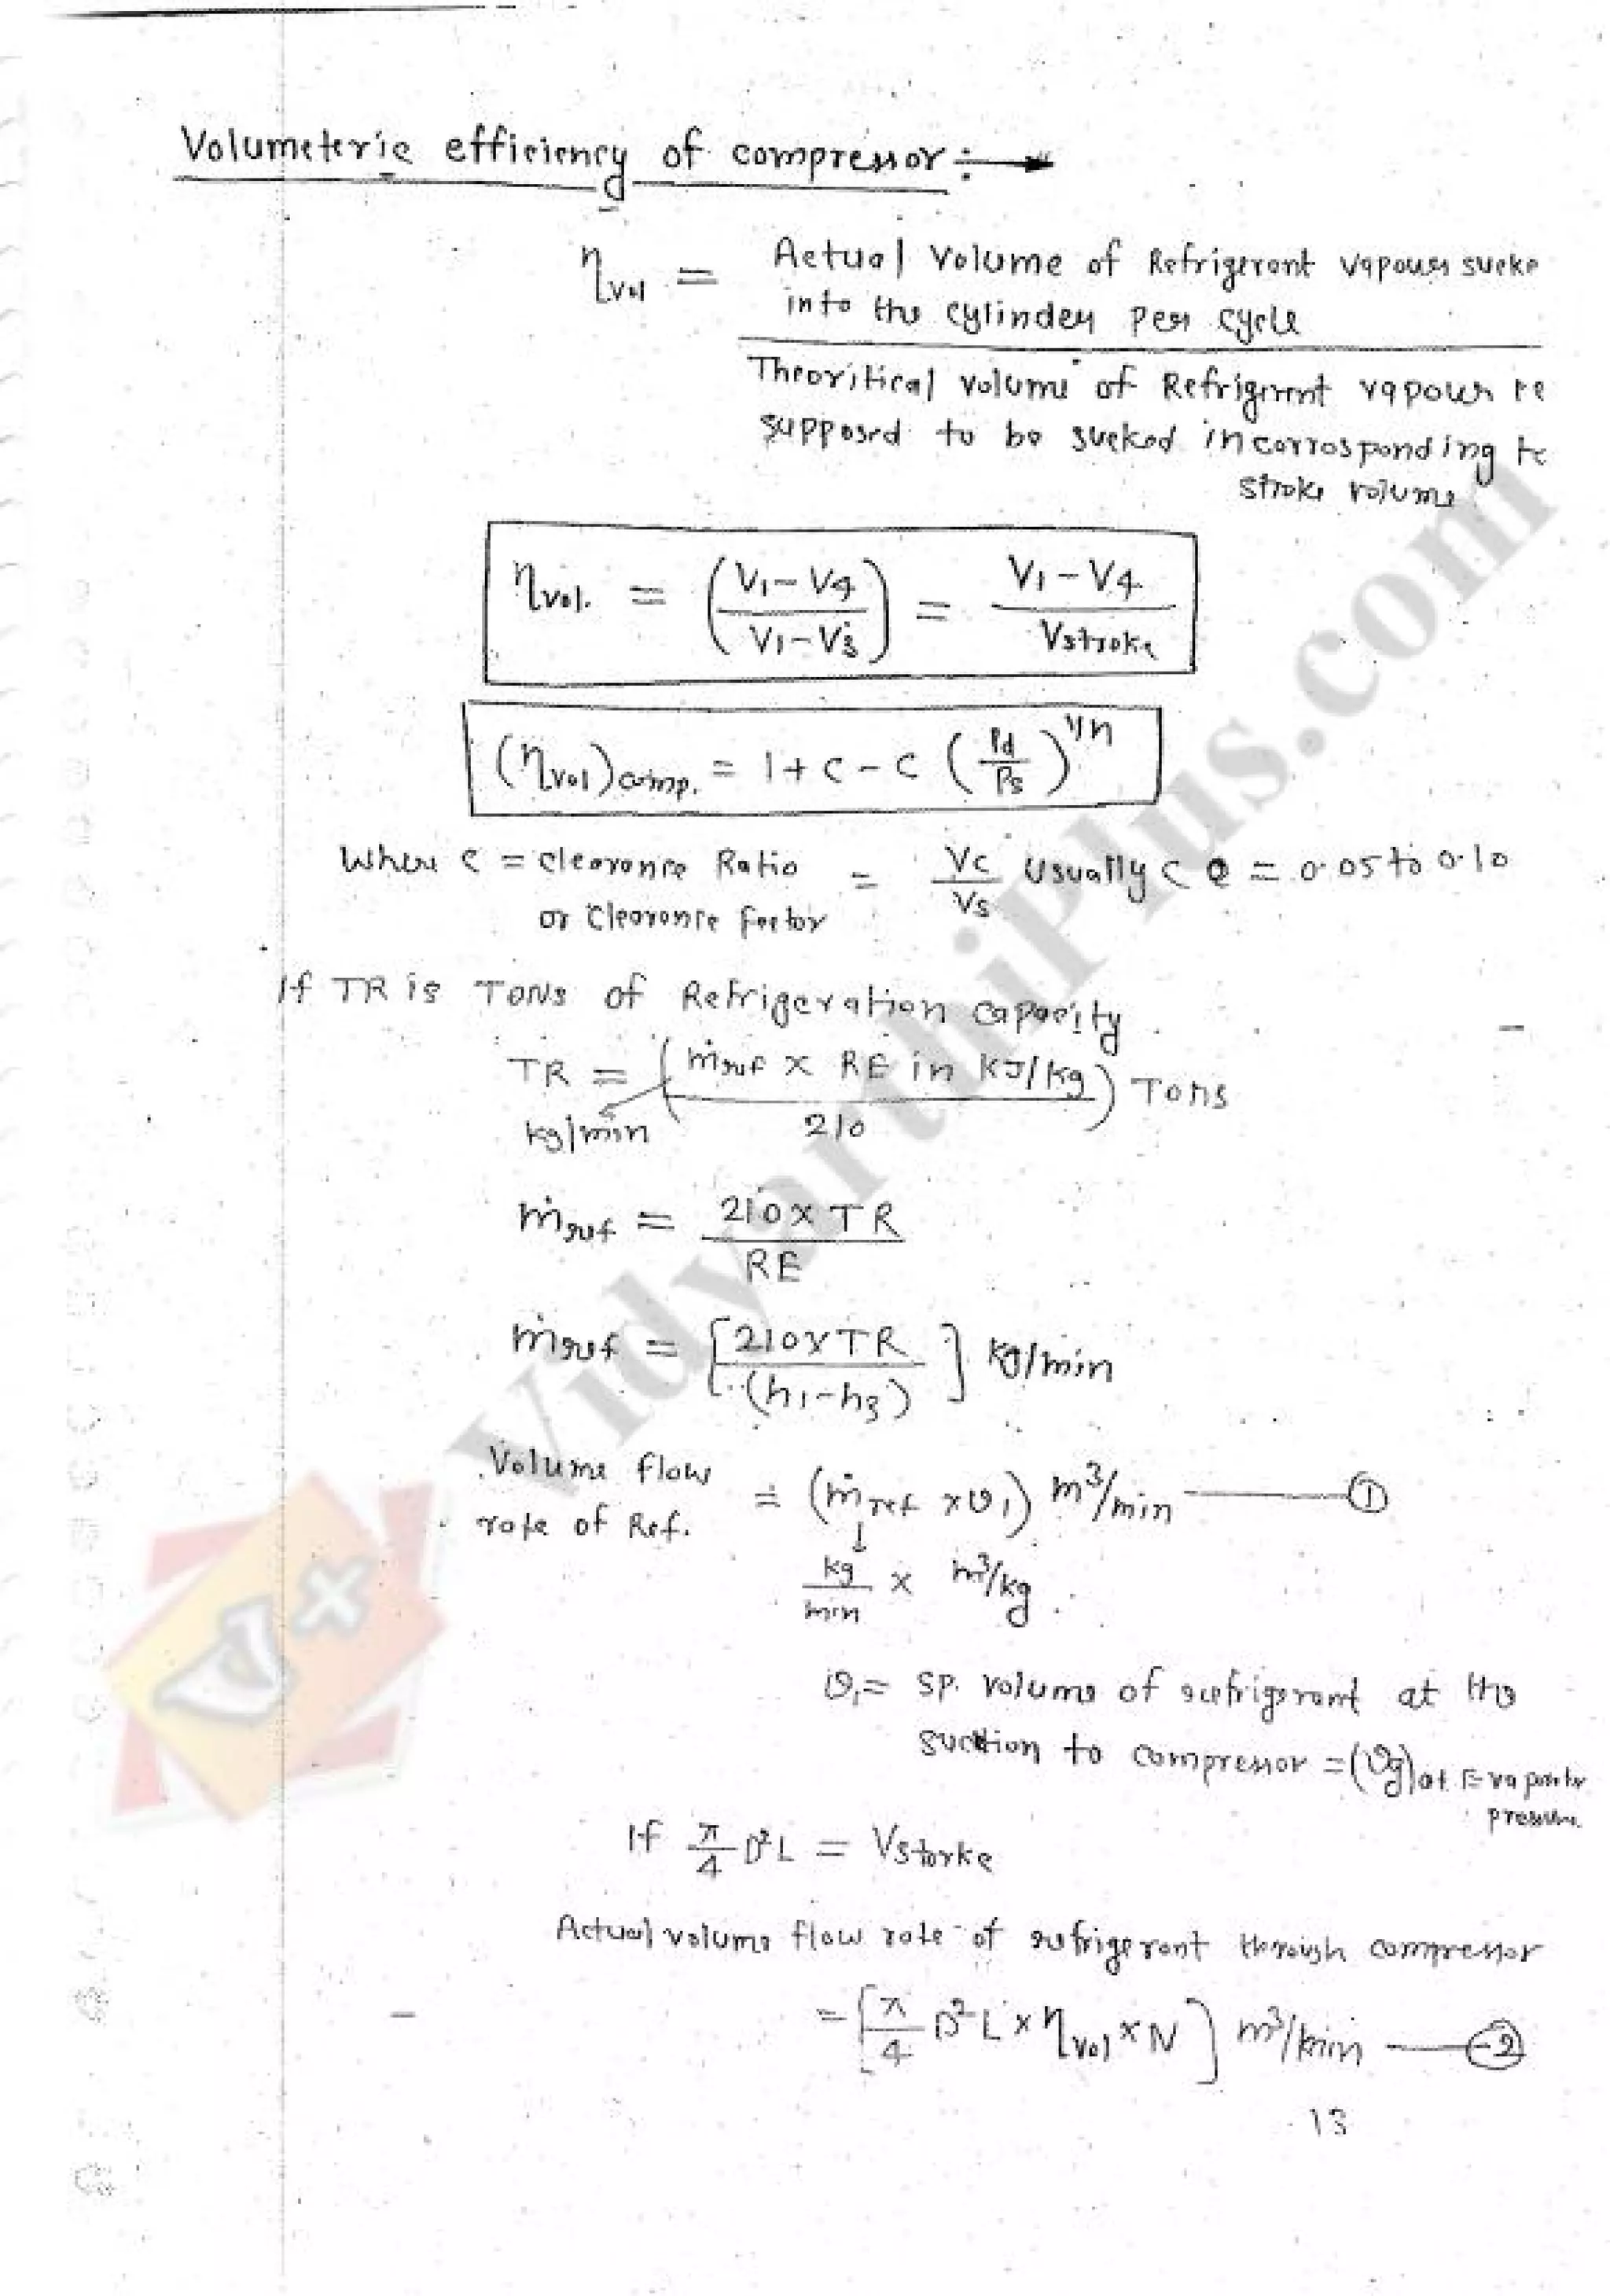 Volumeteric efficiency of compressor :→
η_vol = Actual Volume of Refrigerant vapours sucke
into the cylinder per cycle
Theoritical volume of Refrigerent vapour
supposed to be sucked in corrosponding
stroke volume
η_vol. = (V1 - V4 / V1 - V3) = V1 - V4 / Vstroke
(η_vol)comp. = 1 + C - C (Pd/Ps)^1/n
Where C = Clearance Ratio = Vc/Vs Usually C = 0.05 to 0.10
or Clearance factor
If TR is TONS of Refrigeration capacity
TR = (ṁref × RE in KJ/kg / 210) Tons
kg/min
ṁref = 210 × TR / RE
ṁref = [210 × TR / (h1 - h3)] kg/min
Volume flow rate of Ref. = (ṁref × υ1) m³/min — ①
kg/min × m³/kg
υ1 = SP. volume of refrigerant at the
suction to compressor = (υg) at Evaporator
pressure
If π/4 D²L = Vstorke
Actual volume flow rate of refrigerant through compressor
= [π/4 D²L × η_vol × N] m³/min — ②
13
VidyarthiPlus.com
V+